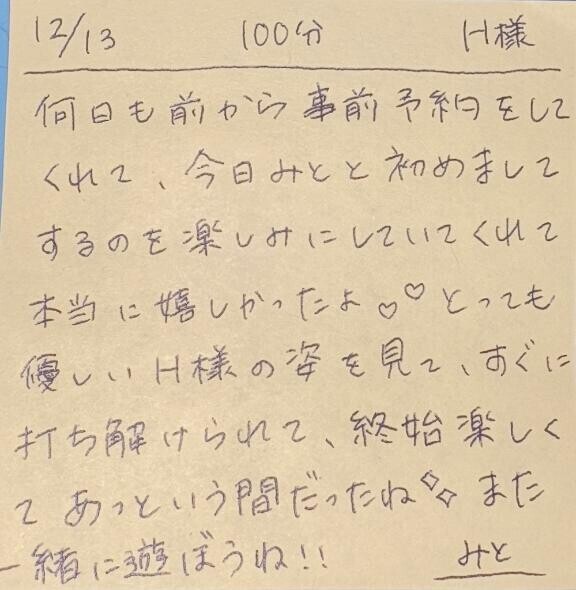 12/13 100分 H様
何日も前から事前予約をして
くれて、今日みとと初めまして
するのを楽しみにしていてくれて
本当に嬉しかったよ♡♡とっても
優しいH様の姿を見て、すぐに
打ち解けられて、終始楽しく
てあっという間だったね✧✧また
一緒に遊ぼうね!! みと